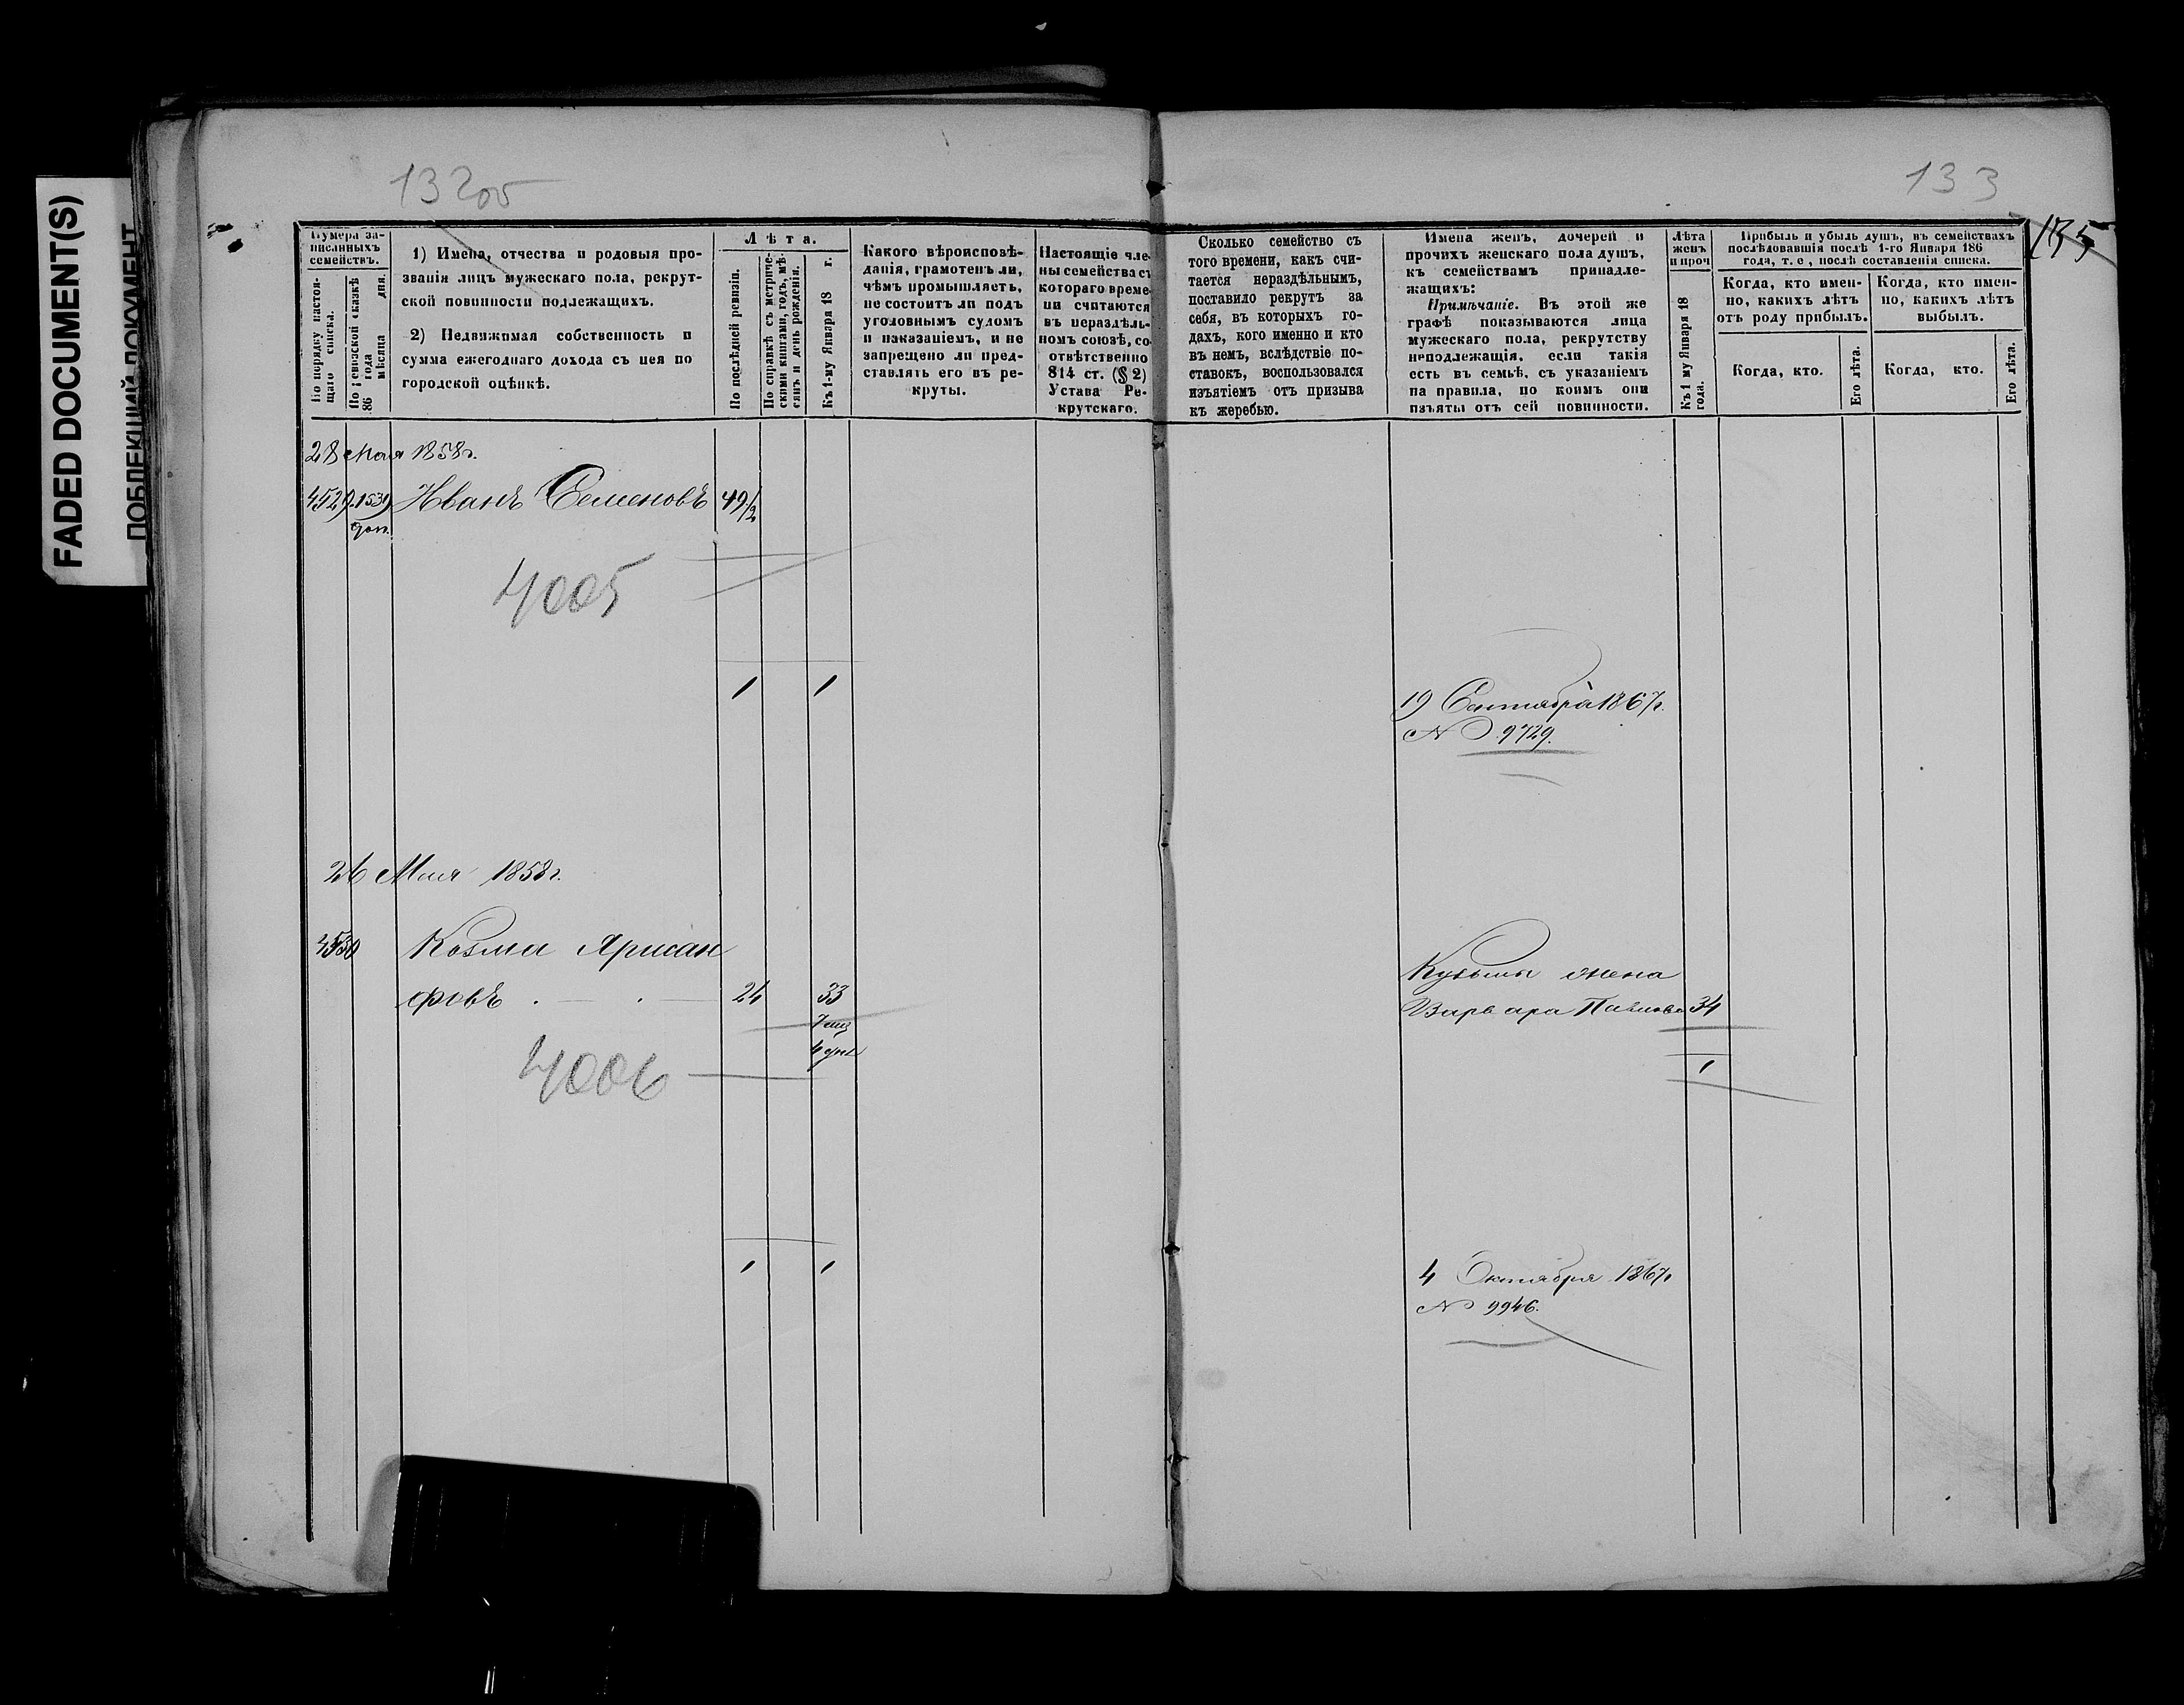 FADED DOCUMENT(S)
ПОБЛЕКШИЙ ДОКУМЕНТ
132об
133
135
Нумера за-
писанныхъ
семействъ.
По порядку настоя-
щаго списка.
По ревизской сказкѣ
186 года
мѣсяца дня.
1) Имена, отчества и родовыя про-
званія лицъ мужескаго пола, рекрут-
ской повинности подлежащихъ.
2) Недвижимая собственность и
сумма ежегоднаго дохода съ нея по
городской оцѣнкѣ.
Лѣта.
По послѣдней ревизіи.
По справкѣ съ метриче-
скими книгами, годъ, мѣ-
сяцъ и день рожденія.
Къ 1-му Января 18 г.
Какого вѣроисповѣ-
данія, грамотенъ ли,
чѣмъ промышляетъ,
не состоитъ ли подъ
уголовнымъ судомъ
и наказаніемъ, и не
запрещено ли пред-
ставлять его въ ре-
круты.
Настоящіе чле-
ны семейства съ
котораго време-
ни считаются
въ нераздѣль-
номъ союзѣ, со-
отвѣтственно
814 ст. (§ 2)
Устава Ре-
крутскаго.
Сколько семейство съ
того времени, какъ счи-
тается нераздѣльнымъ,
поставило рекрутъ за
себя, въ которыхъ го-
дахъ, кого именно и кто
въ немъ, вслѣдствіе по-
ставокъ, воспользовался
изъятіемъ отъ призыва
къ жеребью.
Имена женъ, дочерей и
прочихъ женскаго пола душъ,
къ семействамъ принадле-
жащихъ:
Примѣчаніе. Въ этой же
графѣ показываются лица
мужескаго пола, рекрутству
неподлежащія, если такія
есть въ семьѣ, съ указаніемъ
на правила, по коимъ они
изъяты отъ сей повинности.
Лѣта
женъ
и проч
Къ 1 му Января 18
года.
Прибыль и убыль душъ, въ семействахъ
послѣдовавшія послѣ 1-го Января 186
года, т. е., послѣ составленія списка.
Когда, кто имен-
но, какихъ лѣтъ
отъ роду прибылъ.
Когда, кто имен-
но, какихъ лѣтъ
выбылъ.
Когда, кто.
Его лѣта.
Когда, кто.
Его лѣта.
28 Мая 1858г.
4529 1531 Иванъ Семеновъ 49/2
доп.
4005
1 1
19 Сентября 1867г.
№ 9729.
26 Мая 1858г.
4530 Козма Ярисан
фовъ 24 33
7 мц
4 дня
Кузьмы жена
Варвара Павлова 34
4006
1
1 1
4 Октября 1867г
№ 9946.